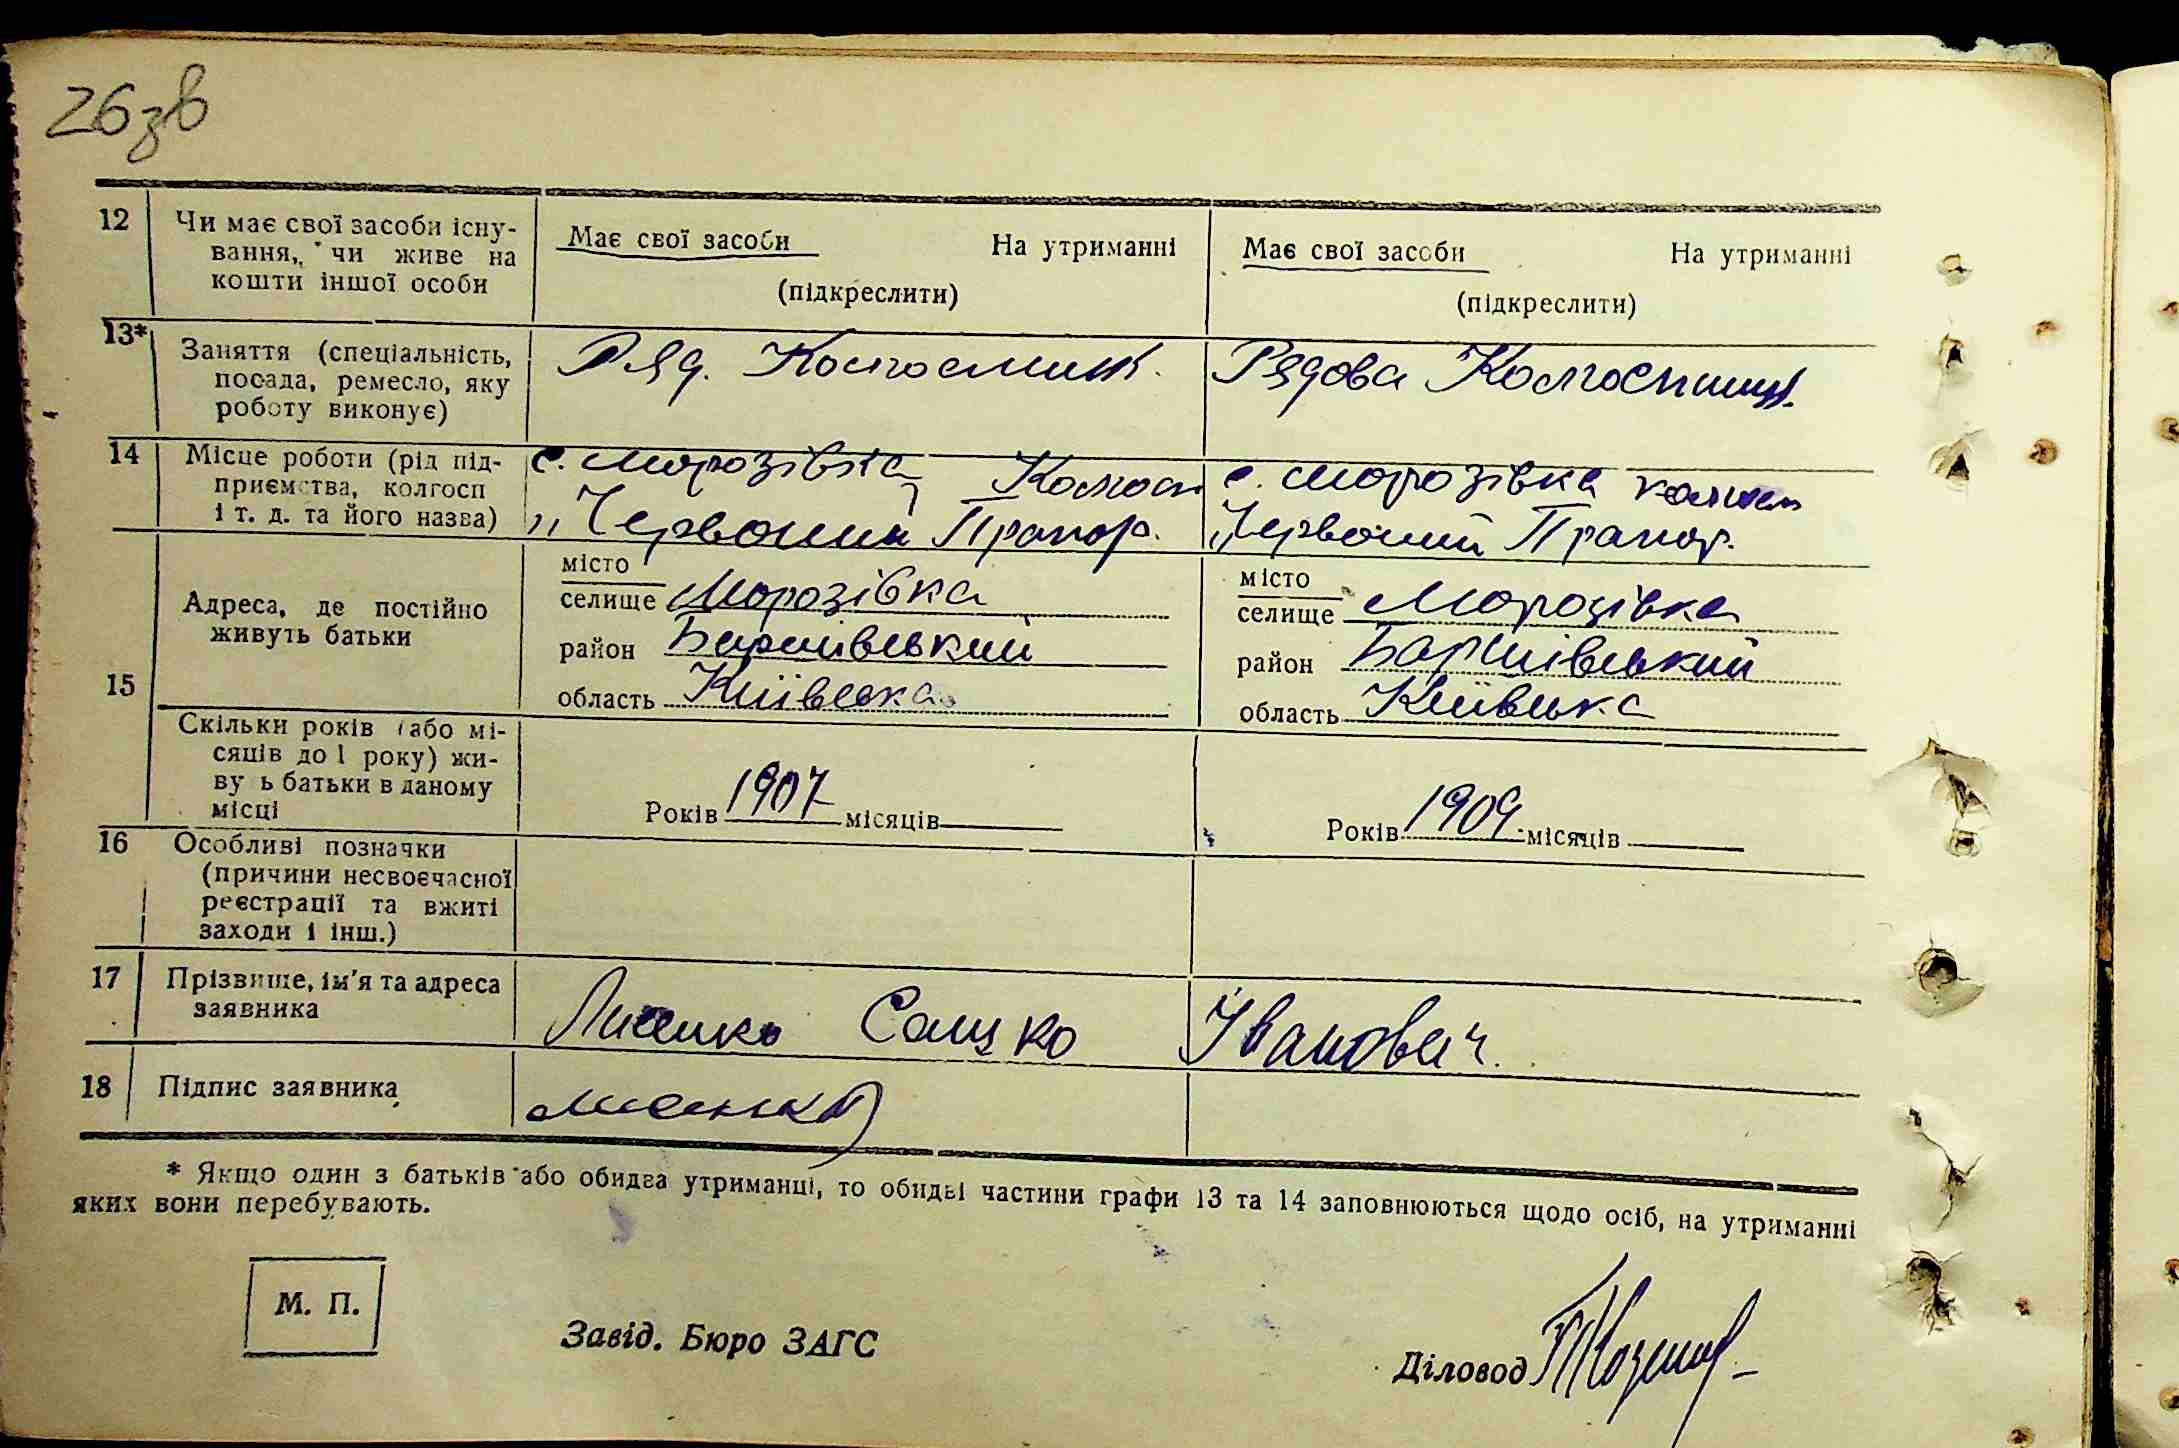 26зв
12 Чи має свої засоби існу-
вання, чи живе на
кошти іншої особи
Має свої засоби На утриманні
(підкреслити)
Має свої засоби На утриманні
(підкреслити)
13* Заняття (спеціальність,
посада, ремесло, яку
роботу виконує)
Ряд. Колгоспник.
Рядова Колгоспниц.
14 Місце роботи (рід під-
приємства, колгосп
і т. д. та його назва)
с. Морозівка Колгосп
„Червоний Прапор.
с. Морозівка колгосп
„Червоний Прапор.
15 Адреса, де постійно
живуть батьки
місто
селище Морозівка
район Баришівський
область Київська
місто
селище Морозівка
район Баришівський
область Київська
Скільки років (або мі-
сяців до 1 року) жи-
ву ь батьки в даному
місці
Років 1907 місяців
Років 1909 місяців
16 Особливі позначки
(причини несвоєчасної
реєстрації та вжиті
заходи і інш.)
17 Прізвище, ім'я та адреса
заявника
Іванович.
18 Підпис заявника
* Якщо один з батьків або обидва утриманці, то обидві частини графи 13 та 14 заповнюються щодо осіб, на утриманні
яких вони перебувають.
М. П.
Завід. Бюро ЗАГС
Діловод